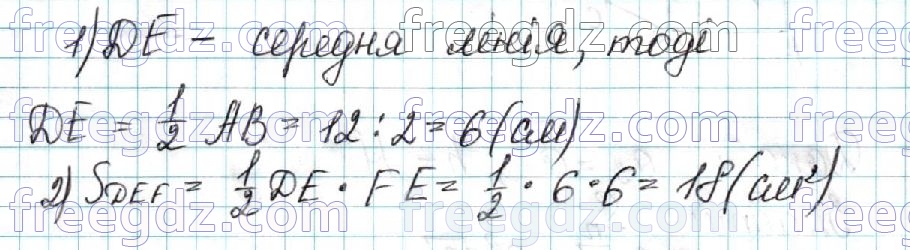 1) DE – середня лінія, тоді
DE = 1/2 AB = 12 : 2 = 6 (см)
2) S_DEF = 1/2 DE · FE = 1/2 · 6 · 6 = 18 (см²)
freegdz.com freegdz.com freegdz.com
freegdz.com freegdz.com freegdz.com
freegdz.com freegdz.com freegdz.com